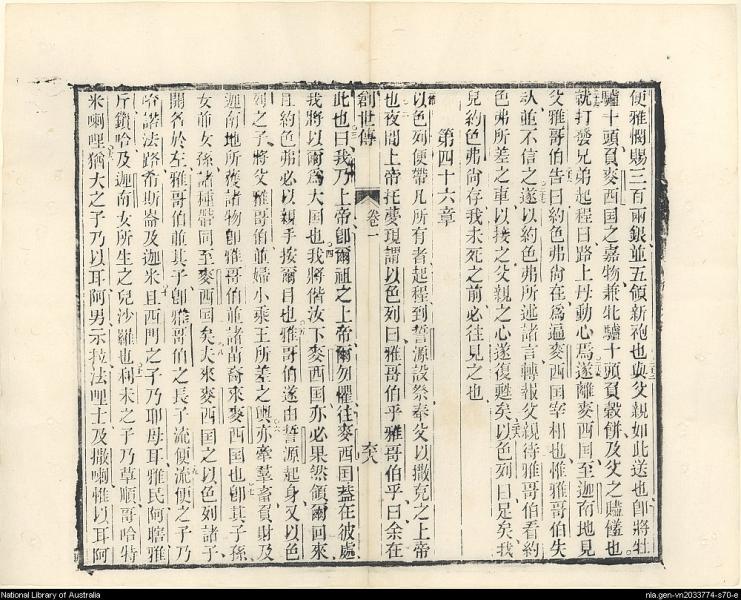 便雅憫賜三百兩銀並五領新袍也與父親如此送也即將牡
驢十頭負麥西國之嘉物兼牝驢十頭負穀餅及父之贐儀也
就打發兄弟起程曰路上毋動心焉遂離麥西國至迦南地見
父雅哥伯告曰約色弗尚在爲遍麥西国宰相也惟雅哥伯失
並不信之遂以約色弗所述諸言轉報父親待雅哥伯看約
色弗所差之車以接之父親之心遂復甦矣以色列曰是矣我
兒約色弗尚存我未死之前必往見之也
第四十六章
以色列便帶凡所有者起程到誓源設祭奉父以撒克之上帝
也夜間上帝托夢現謂以色列曰雅哥伯乎雅哥伯乎曰余在
創世傳 卷一
此也曰我乃上帝即爾祖之上帝爾勿懼往麥西国蓋在彼處
我將以爾爲大国也我將偕汝下麥西国亦必果然領爾回來
且約色弗必以親手按爾目也雅哥伯遂由誓源起身又以色
列之子將父雅哥伯並婦小乘王所差之輿亦牽羣畜負財及
迦南地所獲諸物即雅哥伯並諸苗裔來麥西国也即其子孫
女並女孫諸種偕同至麥西国矣夫來麥西国之以色列諸子
開名於左雅哥伯並其子即雅哥伯之長子流便流便之子乃
哈諾法路希斯崙及迦米且西門之子乃耶母耳雅民阿轄雅
斤鎖哈及迦南女所生之兒沙羅也利未之子乃革順哥哈特
米喇哩猶大之子乃以耳阿男示拉法哩士及撒喇惟以耳阿
National Library of Australia
nla.gen-vn2033774-s70-e